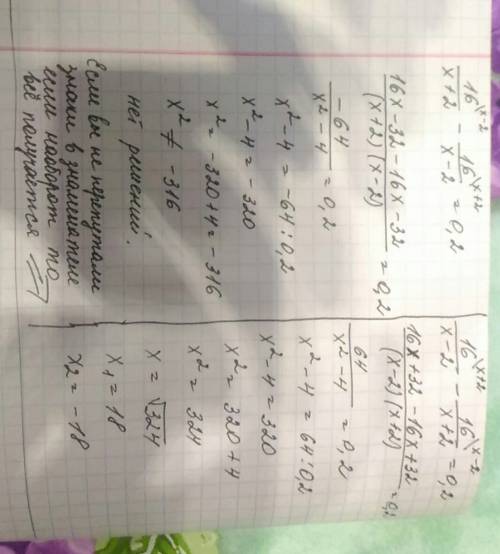 16\x-2 / x+2 - 16\x+2 / x-2 = 0,2
16x-32-16x-32 / (x+2)(x-2) = 0,2
-64 / x²-4 = 0,2
x²-4 = -64:0,2
x²-4 = -320
x² = -320+4 = -316
x² ≠ -316
нет решений.
Если вы не перепутали
знаки в знаменателе
если наоборот то
всё получается
16\x+2 / x-2 - 16\x-2 / x+2 = 0,2
16x+32-16x+32 / (x-2)(x+2) = 0,2
64 / x²-4 = 0,2
x²-4 = 64:0,2
x²-4 = 320
x² = 320+4
x² = 324
x = √324
x₁ = 18
x₂ = -18